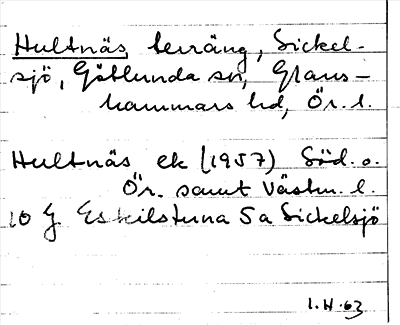 Hultnäs, terräng, Sickel-
sjö, Götlunda sn, Glans-
hammars hd, Ör. l.
Hultnäs ek (1957) Söd. o.
Ör. samt Västm. l.
10 J Eskilstuna 5a Sickelsjö
I.H.63